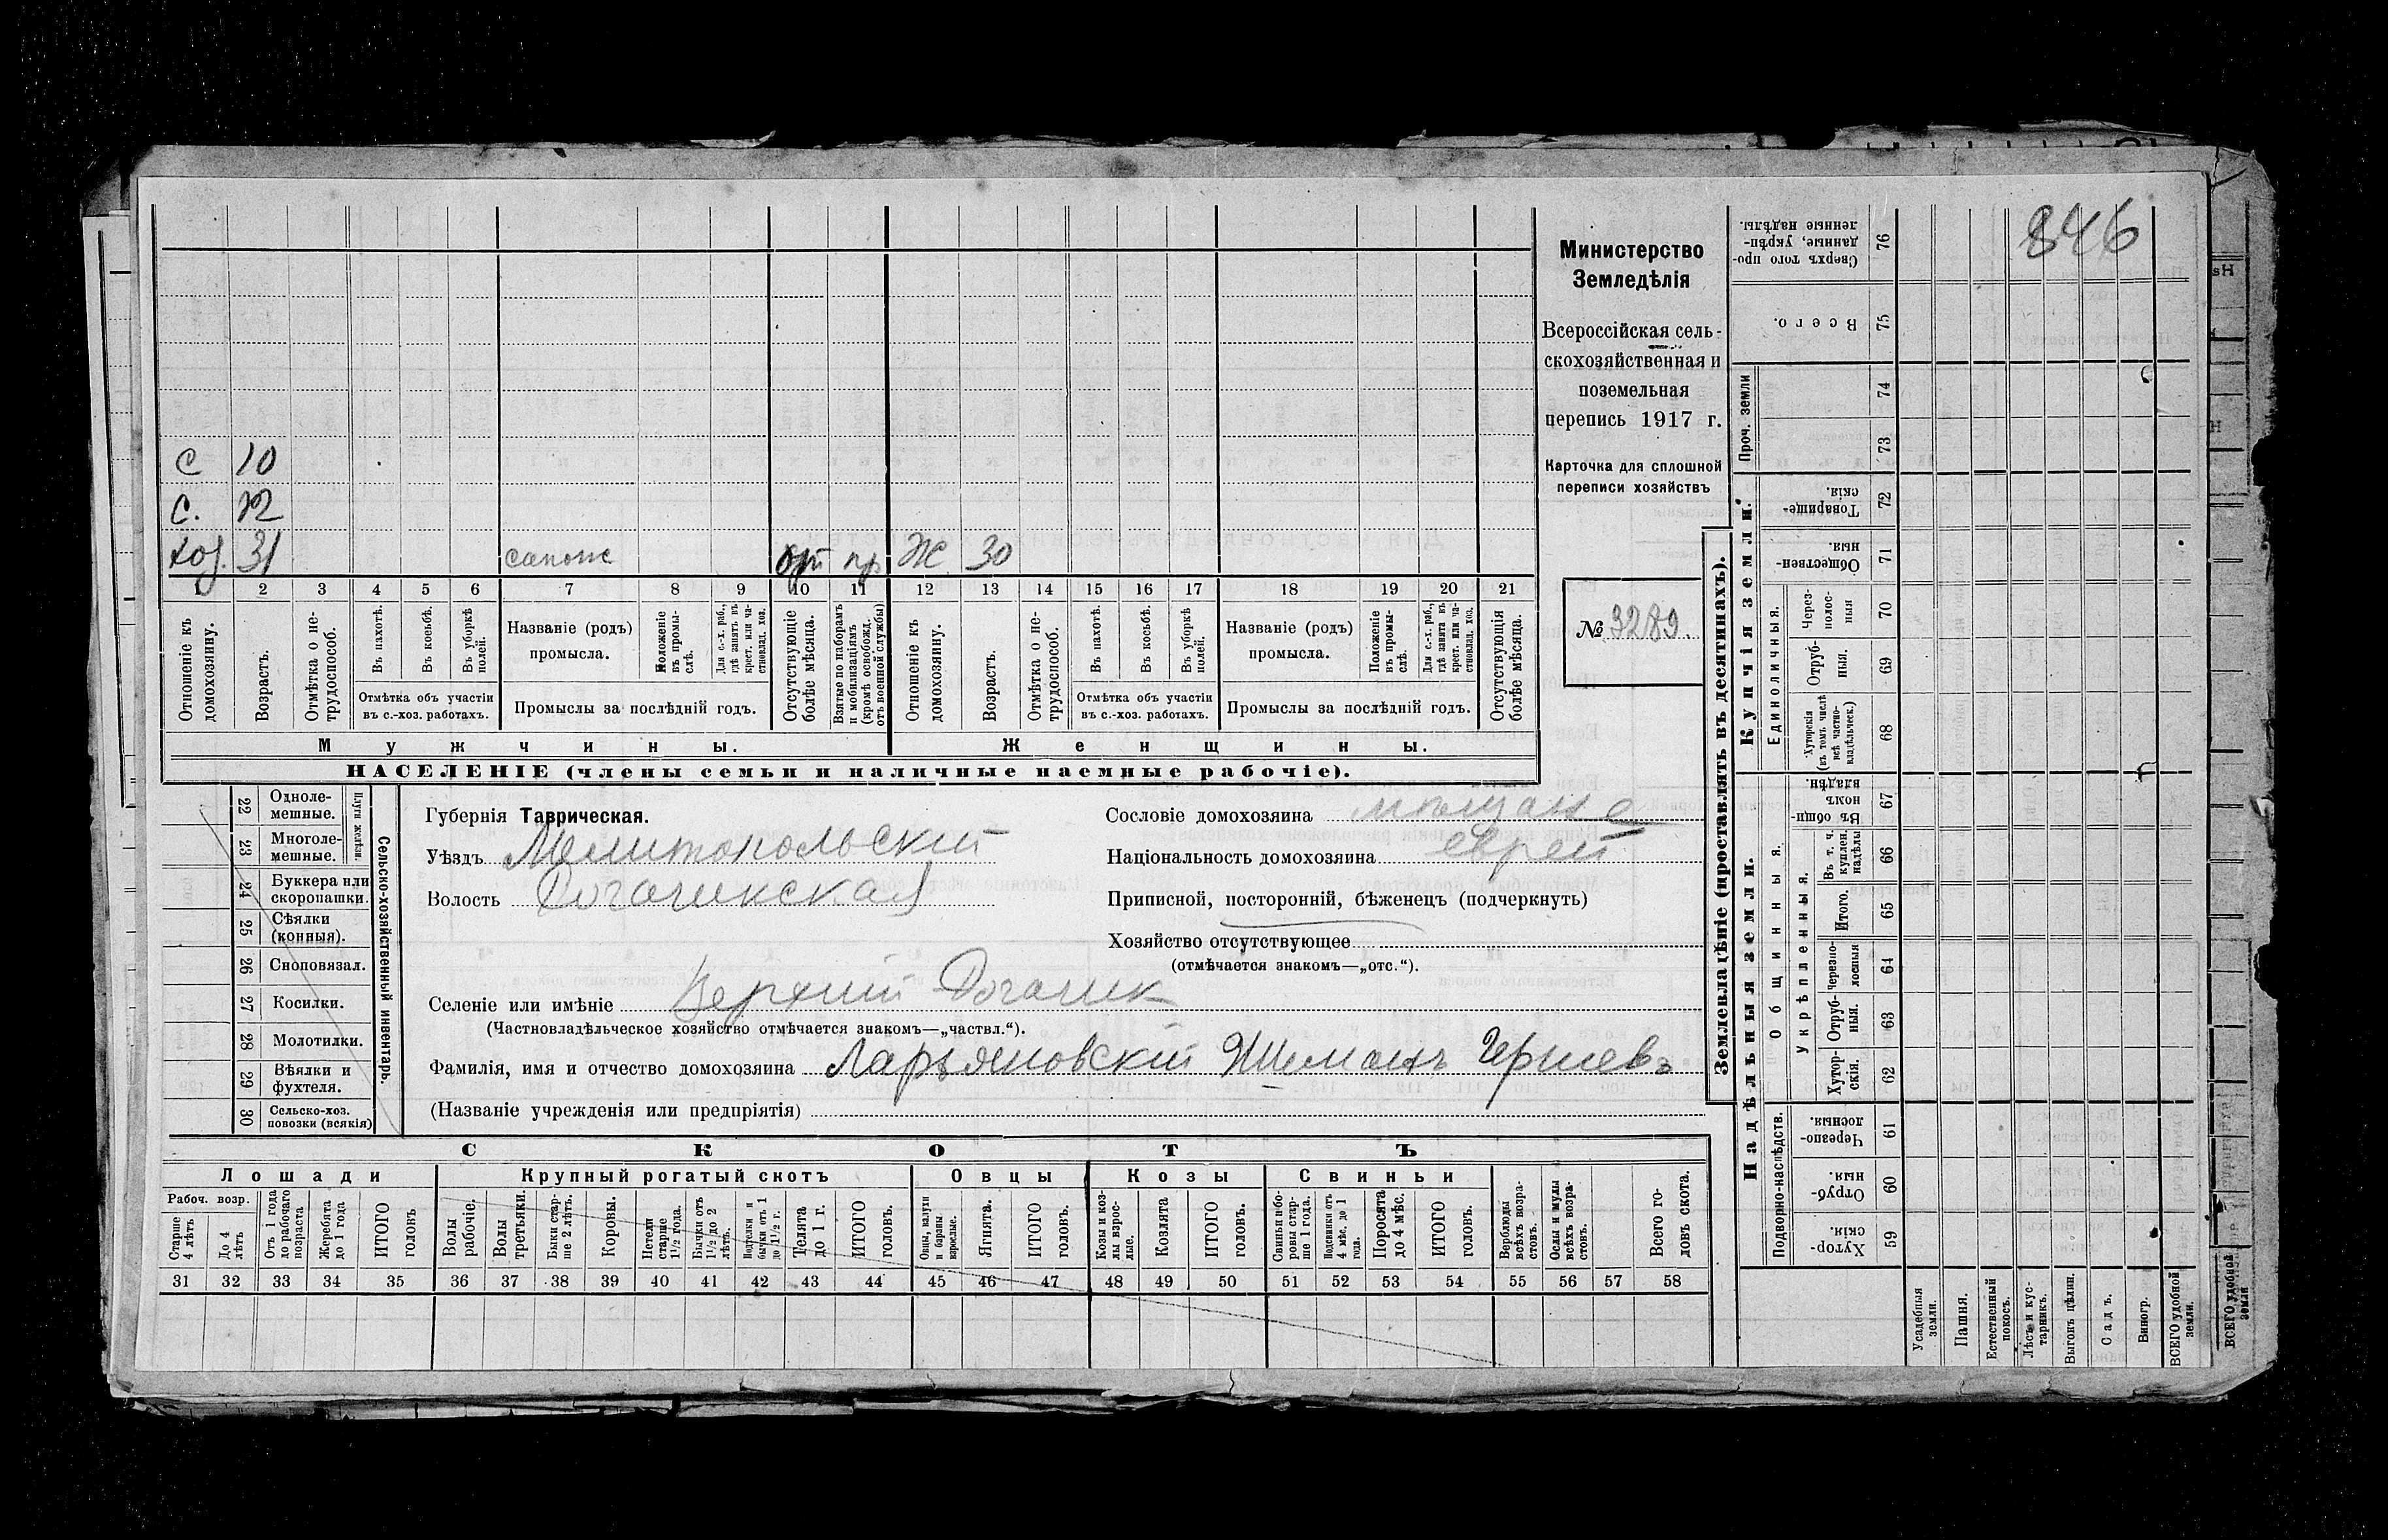 846
Министерство
Земледѣлія
Всероссійская сель-
скохозяйственная и
поземельная
перепись 1917 г.
Карточка для сплошной
переписи хозяйствъ
№ 3289.
с 10
с. 12
хоз. 31 сапож пр Ж 30
1 2 3 4 5 6 7 8 9 10 11 12 13 14 15 16 17 18 19 20 21
Отношеніе къ домохозяину.
Возрастъ.
Отмѣтка о не-трудоспособ.
Въ пахотѣ.
Въ косьбѣ.
Въ уборкѣ полей.
Отмѣтка объ участіи
въ с.-хоз. работахъ.
Названіе (родъ)
промысла.
Положеніе въ промы-слѣ.
Для с.-х. раб., гдѣ занятъ въ крест. или ча-стновлад. хоз.
Промыслы за послѣдній годъ.
Отсутствующіе болѣе мѣсяца.
Взятые по наборамъ и мобилизаціямъ (кромѣ освобожд. отъ военной службы)
Отношеніе къ домохозяину.
Возрастъ.
Отмѣтка о не-трудоспособ.
Въ пахотѣ.
Въ косьбѣ.
Въ уборкѣ полей.
Отмѣтка объ участіи
въ с.-хоз. работахъ.
Названіе (родъ)
промысла.
Положеніе въ промы-слѣ.
Для с.-х. раб., гдѣ занята въ крест. или ча-стновлад. хоз.
Промыслы за послѣдній годъ.
Отсутствующія болѣе мѣсяца.
Мужчины.
Женщины.
НАСЕЛЕНІЕ (члены семьи и наличные наемные рабочіе).
22 Одноле-мешные.
23 Многоле-мешные.
Плуги желѣзн.
24 Буккера или скоропашки.
25 Сѣялки (конныя).
26 Сноповязал.
27 Косилки.
28 Молотилки.
29 Вѣялки и фухтеля.
30 Сельско-хоз. повозки (всякія)
Сельско-хозяйственный инвентарь.
Губернія Таврическая.
Уѣздъ Мелитопольскій
Волость Рогачикская
Селеніе или имѣніе Верхній Рогачик
(Частновладѣльческое хозяйство отмѣчается знакомъ—„частвл.“).
Фамилія, имя и отчество домохозяина Ларьяновскій
(Названіе учрежденія или предпріятія)
Сословіе домохозяина мѣщане
Національность домохозяина еврей
Приписной, посторонній, бѣженецъ (подчеркнуть)
Хозяйство отсутствующее
(отмѣчается знакомъ—„отс.“).
СКОТЪ
Лошади
Крупный рогатый скотъ
Овцы
Козы
Свиньи
Рабоч. возр.
Старше 4 лѣтъ
До 4 лѣтъ
Отъ 1 года до рабочаго возраста
Жеребята до 1 года
ИТОГО головъ
Волы рабочіе.
Волы третьяки.
Быки стар-ше 2 лѣтъ.
Коровы.
Нетели старше 1½ года.
Бычки отъ 1½ до 2 лѣтъ.
Подтелки и бычки отъ 1 до 1½ г.
Телята до 1 г.
ИТОГО головъ.
Овцы, валухи и бараны взрослые.
Ягнята.
ИТОГО головъ.
Козы и коз-лы взрос-лые.
Козлята
ИТОГО головъ.
Свиньи и бо-ровы стар-ше 1 года.
Подсвинки отъ 4 мѣс. до 1 года.
Поросята до 4 мѣс.
ИТОГО головъ.
Верблюды всѣхъ возра-стовъ.
Ослы и мулы всѣхъ возра-стовъ.
Всего го-ловъ скота.
31 32 33 34 35 36 37 38 39 40 41 42 43 44 45 46 47 48 49 50 51 52 53 54 55 56 57 58
Землевладѣніе (проставлять въ десятинахъ).
Купчія земли.
Надѣльныя земли.
Сверхъ того про-данные, укрѣп-ленные надѣлы. 76
Всего. 75
Проч. земли
74
73
Товарище-скія. 72
Обществен-ныя. 71
Единоличныя.
Через-полос-ныя 70
Отруб-ныя. 69
Хуторскія (въ томъ числѣ всѣ частно-владѣльческ.) 68
Въ общи-номъ владѣн. 67
Общинныя.
Укрѣпленныя.
Въ т. ч. куплен. надѣлы 66
Итого. 65
Черезпо-лосныя 64
Отруб-ныя. 63
Хутор-скія. 62
Подворно-наслѣдств.
Черезпо-лосныя. 61
Отруб-ныя. 60
Хутор-скія. 59
Усадебныя земли.
Пашня.
Естественный покосъ.
Лѣсъ и кус-тарникъ.
Выгонъ цѣлин.
Садъ.
Виногр.
ВСЕГО удобной земли.
ВСЕГО удобной земли